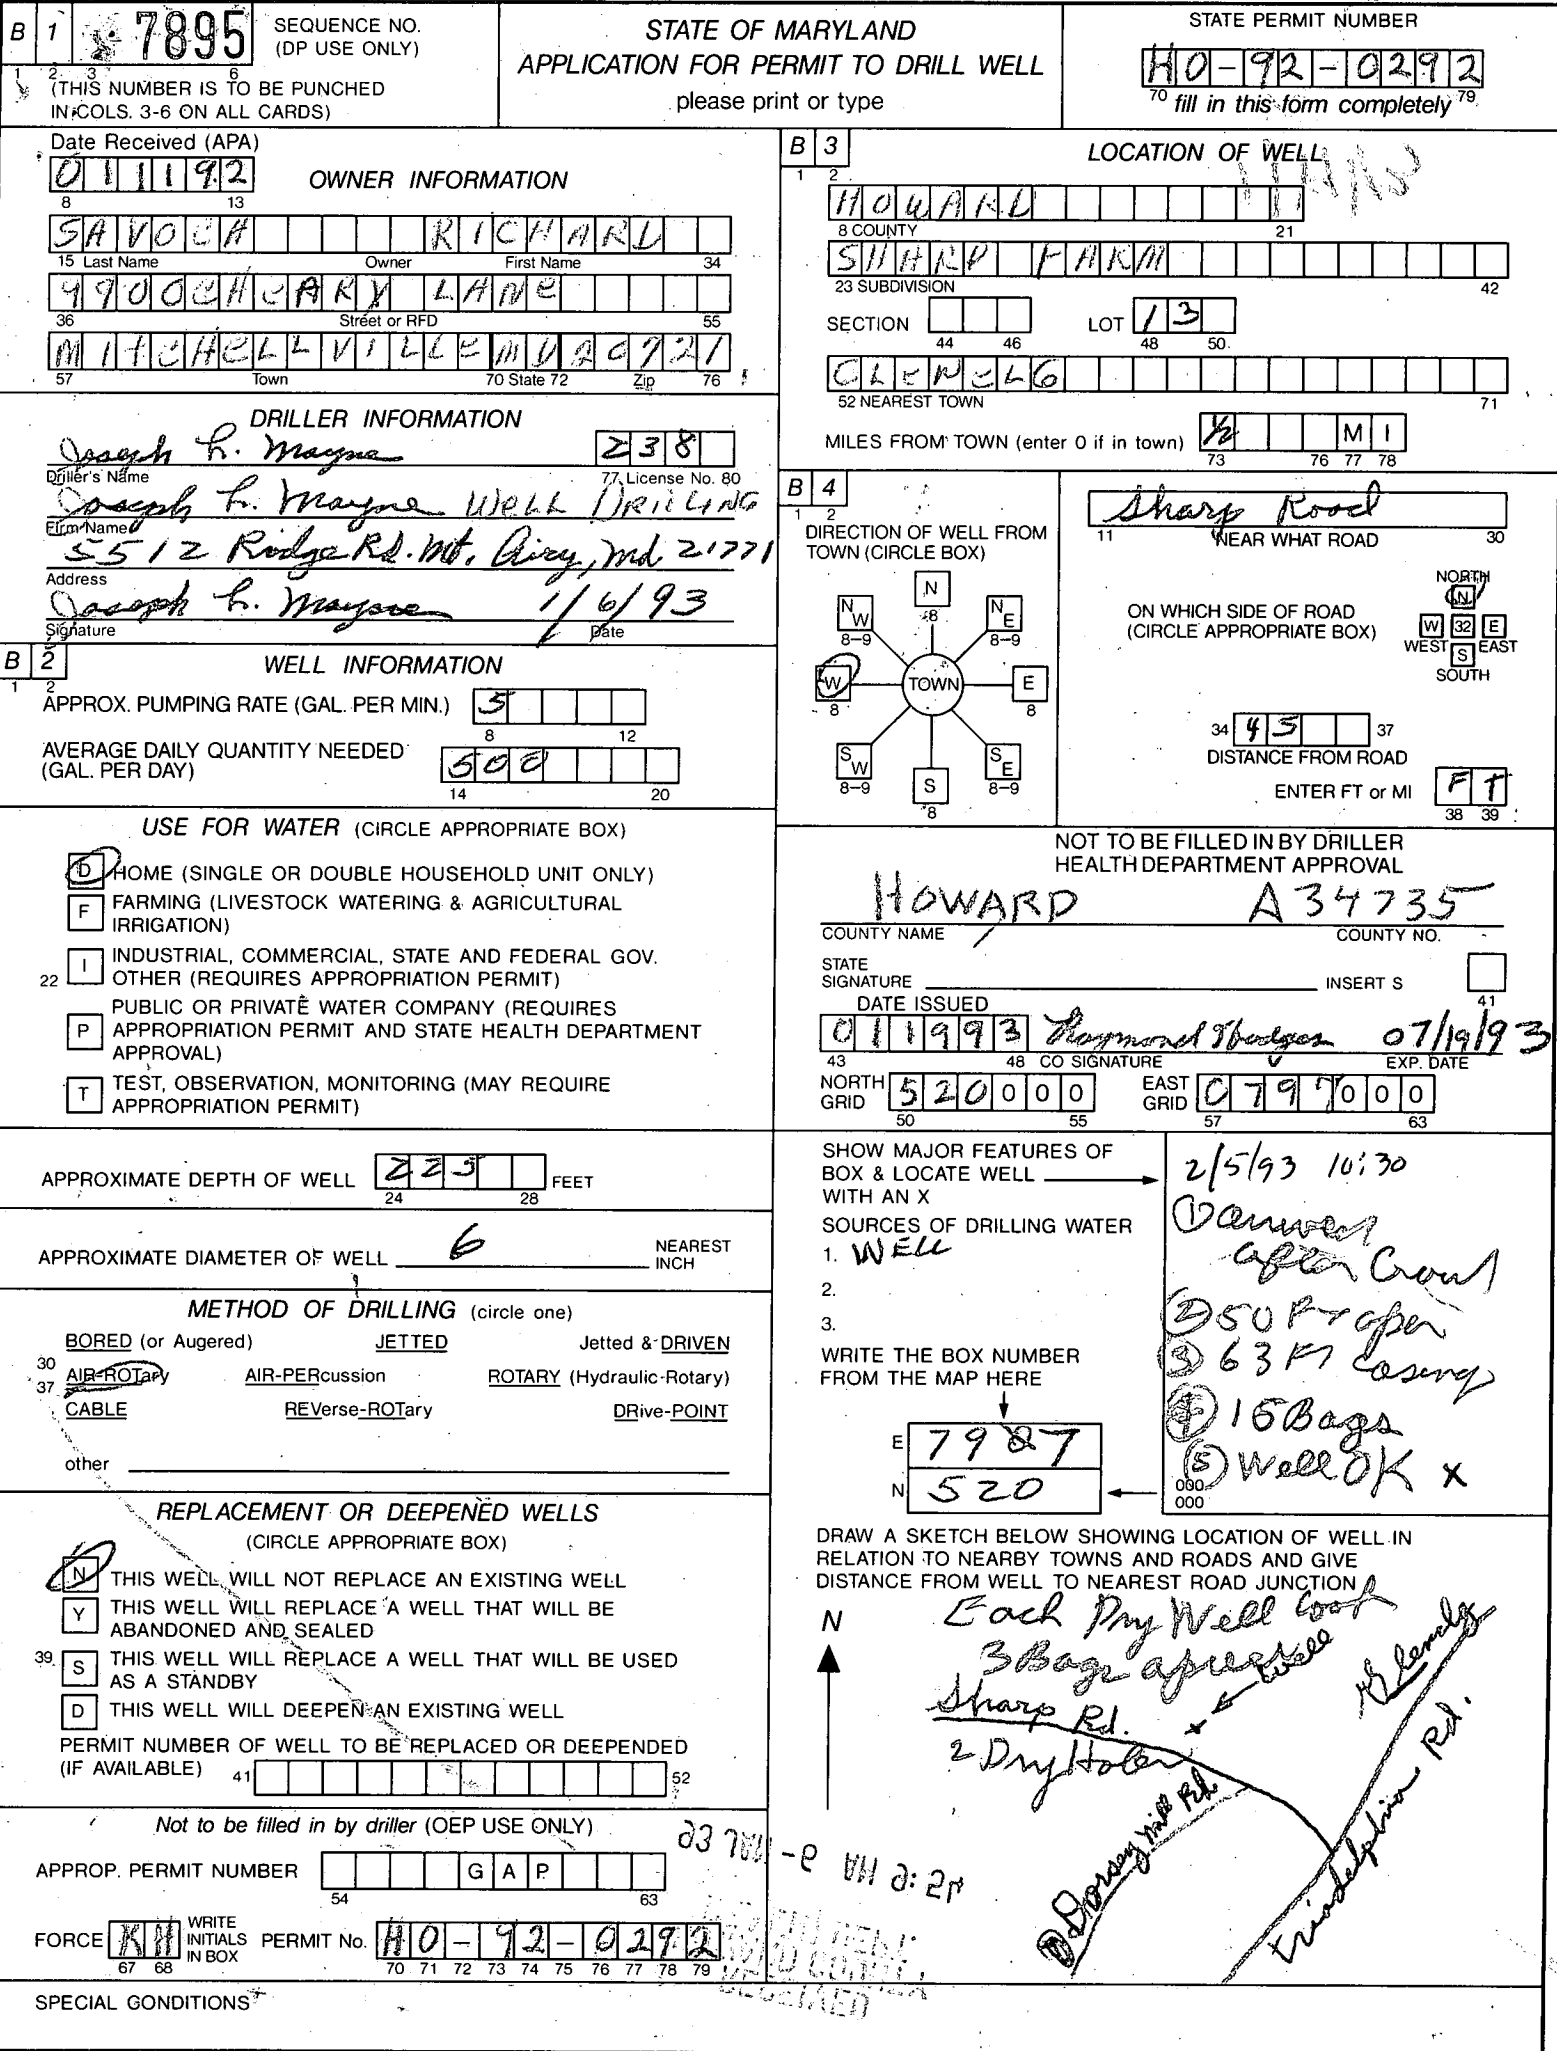 B 1 7895 SEQUENCE NO.
(DP USE ONLY)
1 2 3 6
(THIS NUMBER IS TO BE PUNCHED
IN COLS. 3-6 ON ALL CARDS)
STATE OF MARYLAND
APPLICATION FOR PERMIT TO DRILL WELL
please print or type
STATE PERMIT NUMBER
HO-92-0292
70 fill in this form completely 79
Date Received (APA)
011192
8 13
OWNER INFORMATION
SAVOCA RICHARD
15 Last Name Owner First Name 34
9900 CHEARY LANE
36 Street or RFD 55
MITCHELLVILLE MD 20721
57 Town 70 State 72 Zip 76
DRILLER INFORMATION
Joseph L. Mayne 238
Driller's Name 77 License No. 80
Joseph L. Mayne WELL DRILLING
Firm Name
5512 Ridge Rd. Mt. Airy, Md. 21771
Address
Joseph L. Mayne 1/6/93
Signature Date
B 2 WELL INFORMATION
1 2
APPROX. PUMPING RATE (GAL. PER MIN.) 5
8 12
AVERAGE DAILY QUANTITY NEEDED
(GAL. PER DAY) 500
14 20
USE FOR WATER (CIRCLE APPROPRIATE BOX)
D HOME (SINGLE OR DOUBLE HOUSEHOLD UNIT ONLY)
F FARMING (LIVESTOCK WATERING & AGRICULTURAL
IRRIGATION)
22 I INDUSTRIAL, COMMERCIAL, STATE AND FEDERAL GOV.
OTHER (REQUIRES APPROPRIATION PERMIT)
P PUBLIC OR PRIVATE WATER COMPANY (REQUIRES
APPROPRIATION PERMIT AND STATE HEALTH DEPARTMENT
APPROVAL)
T TEST, OBSERVATION, MONITORING (MAY REQUIRE
APPROPRIATION PERMIT)
APPROXIMATE DEPTH OF WELL 225 FEET
24 28
APPROXIMATE DIAMETER OF WELL 6 NEAREST
INCH
METHOD OF DRILLING (circle one)
BORED (or Augered) JETTED Jetted & DRIVEN
30 AIR-ROTary AIR-PERcussion ROTARY (Hydraulic-Rotary)
37 CABLE REVerse-ROTary DRive-POINT
other
REPLACEMENT OR DEEPENED WELLS
(CIRCLE APPROPRIATE BOX)
N THIS WELL WILL NOT REPLACE AN EXISTING WELL
Y THIS WELL WILL REPLACE A WELL THAT WILL BE
ABANDONED AND SEALED
39 S THIS WELL WILL REPLACE A WELL THAT WILL BE USED
AS A STANDBY
D THIS WELL WILL DEEPEN AN EXISTING WELL
PERMIT NUMBER OF WELL TO BE REPLACED OR DEEPENDED
(IF AVAILABLE) 41 52
Not to be filled in by driller (OEP USE ONLY)
APPROP. PERMIT NUMBER G A P
54 63
FORCE KH WRITE
INITIALS
IN BOX PERMIT No. HO-92-0292
67 68 70 71 72 73 74 75 76 77 78 79
SPECIAL CONDITIONS
B 3 LOCATION OF WELL
1 2
HOWARD
8 COUNTY 21
SHARP FARM
23 SUBDIVISION 42
SECTION LOT 13
44 46 48 50
GLENELG
52 NEAREST TOWN 71
MILES FROM TOWN (enter 0 if in town) 1/2 M I
73 76 77 78
B 4
1 2
DIRECTION OF WELL FROM
TOWN (CIRCLE BOX)
N 8
NW 8-9
NE 8-9
W 8
TOWN
E 8
SW 8-9
S 8
SE 8-9
Sharp Road
11 NEAR WHAT ROAD 30
ON WHICH SIDE OF ROAD
(CIRCLE APPROPRIATE BOX)
NORTH
N
W 32 E
WEST S EAST
SOUTH
34 45 37
DISTANCE FROM ROAD
ENTER FT or MI FT
38 39
NOT TO BE FILLED IN BY DRILLER
HEALTH DEPARTMENT APPROVAL
HOWARD A34735
COUNTY NAME COUNTY NO.
STATE
SIGNATURE INSERT S
41
DATE ISSUED
011993 Raymond Hodges 07/19/93
43 48 CO SIGNATURE EXP. DATE
NORTH
GRID 520000 EAST
GRID 0797000
50 55 57 63
SHOW MAJOR FEATURES OF
BOX & LOCATE WELL
WITH AN X
SOURCES OF DRILLING WATER
1. WELL
2.
3.
WRITE THE BOX NUMBER
FROM THE MAP HERE
E 7987
N 520
2/5/93 10:30
(1)
after
(2) 50 Ft open
(3) 63 Ft casing
(4) 16 Bags
(5) Well OK X
000
000
DRAW A SKETCH BELOW SHOWING LOCATION OF WELL IN
RELATION TO NEARBY TOWNS AND ROADS AND GIVE
DISTANCE FROM WELL TO NEAREST ROAD JUNCTION
N
Each Dry Well
3 Bags
Well
Sharp Rd.
2 Dry Holes
Dorsey Mill Rd
Triadelphia Rd.